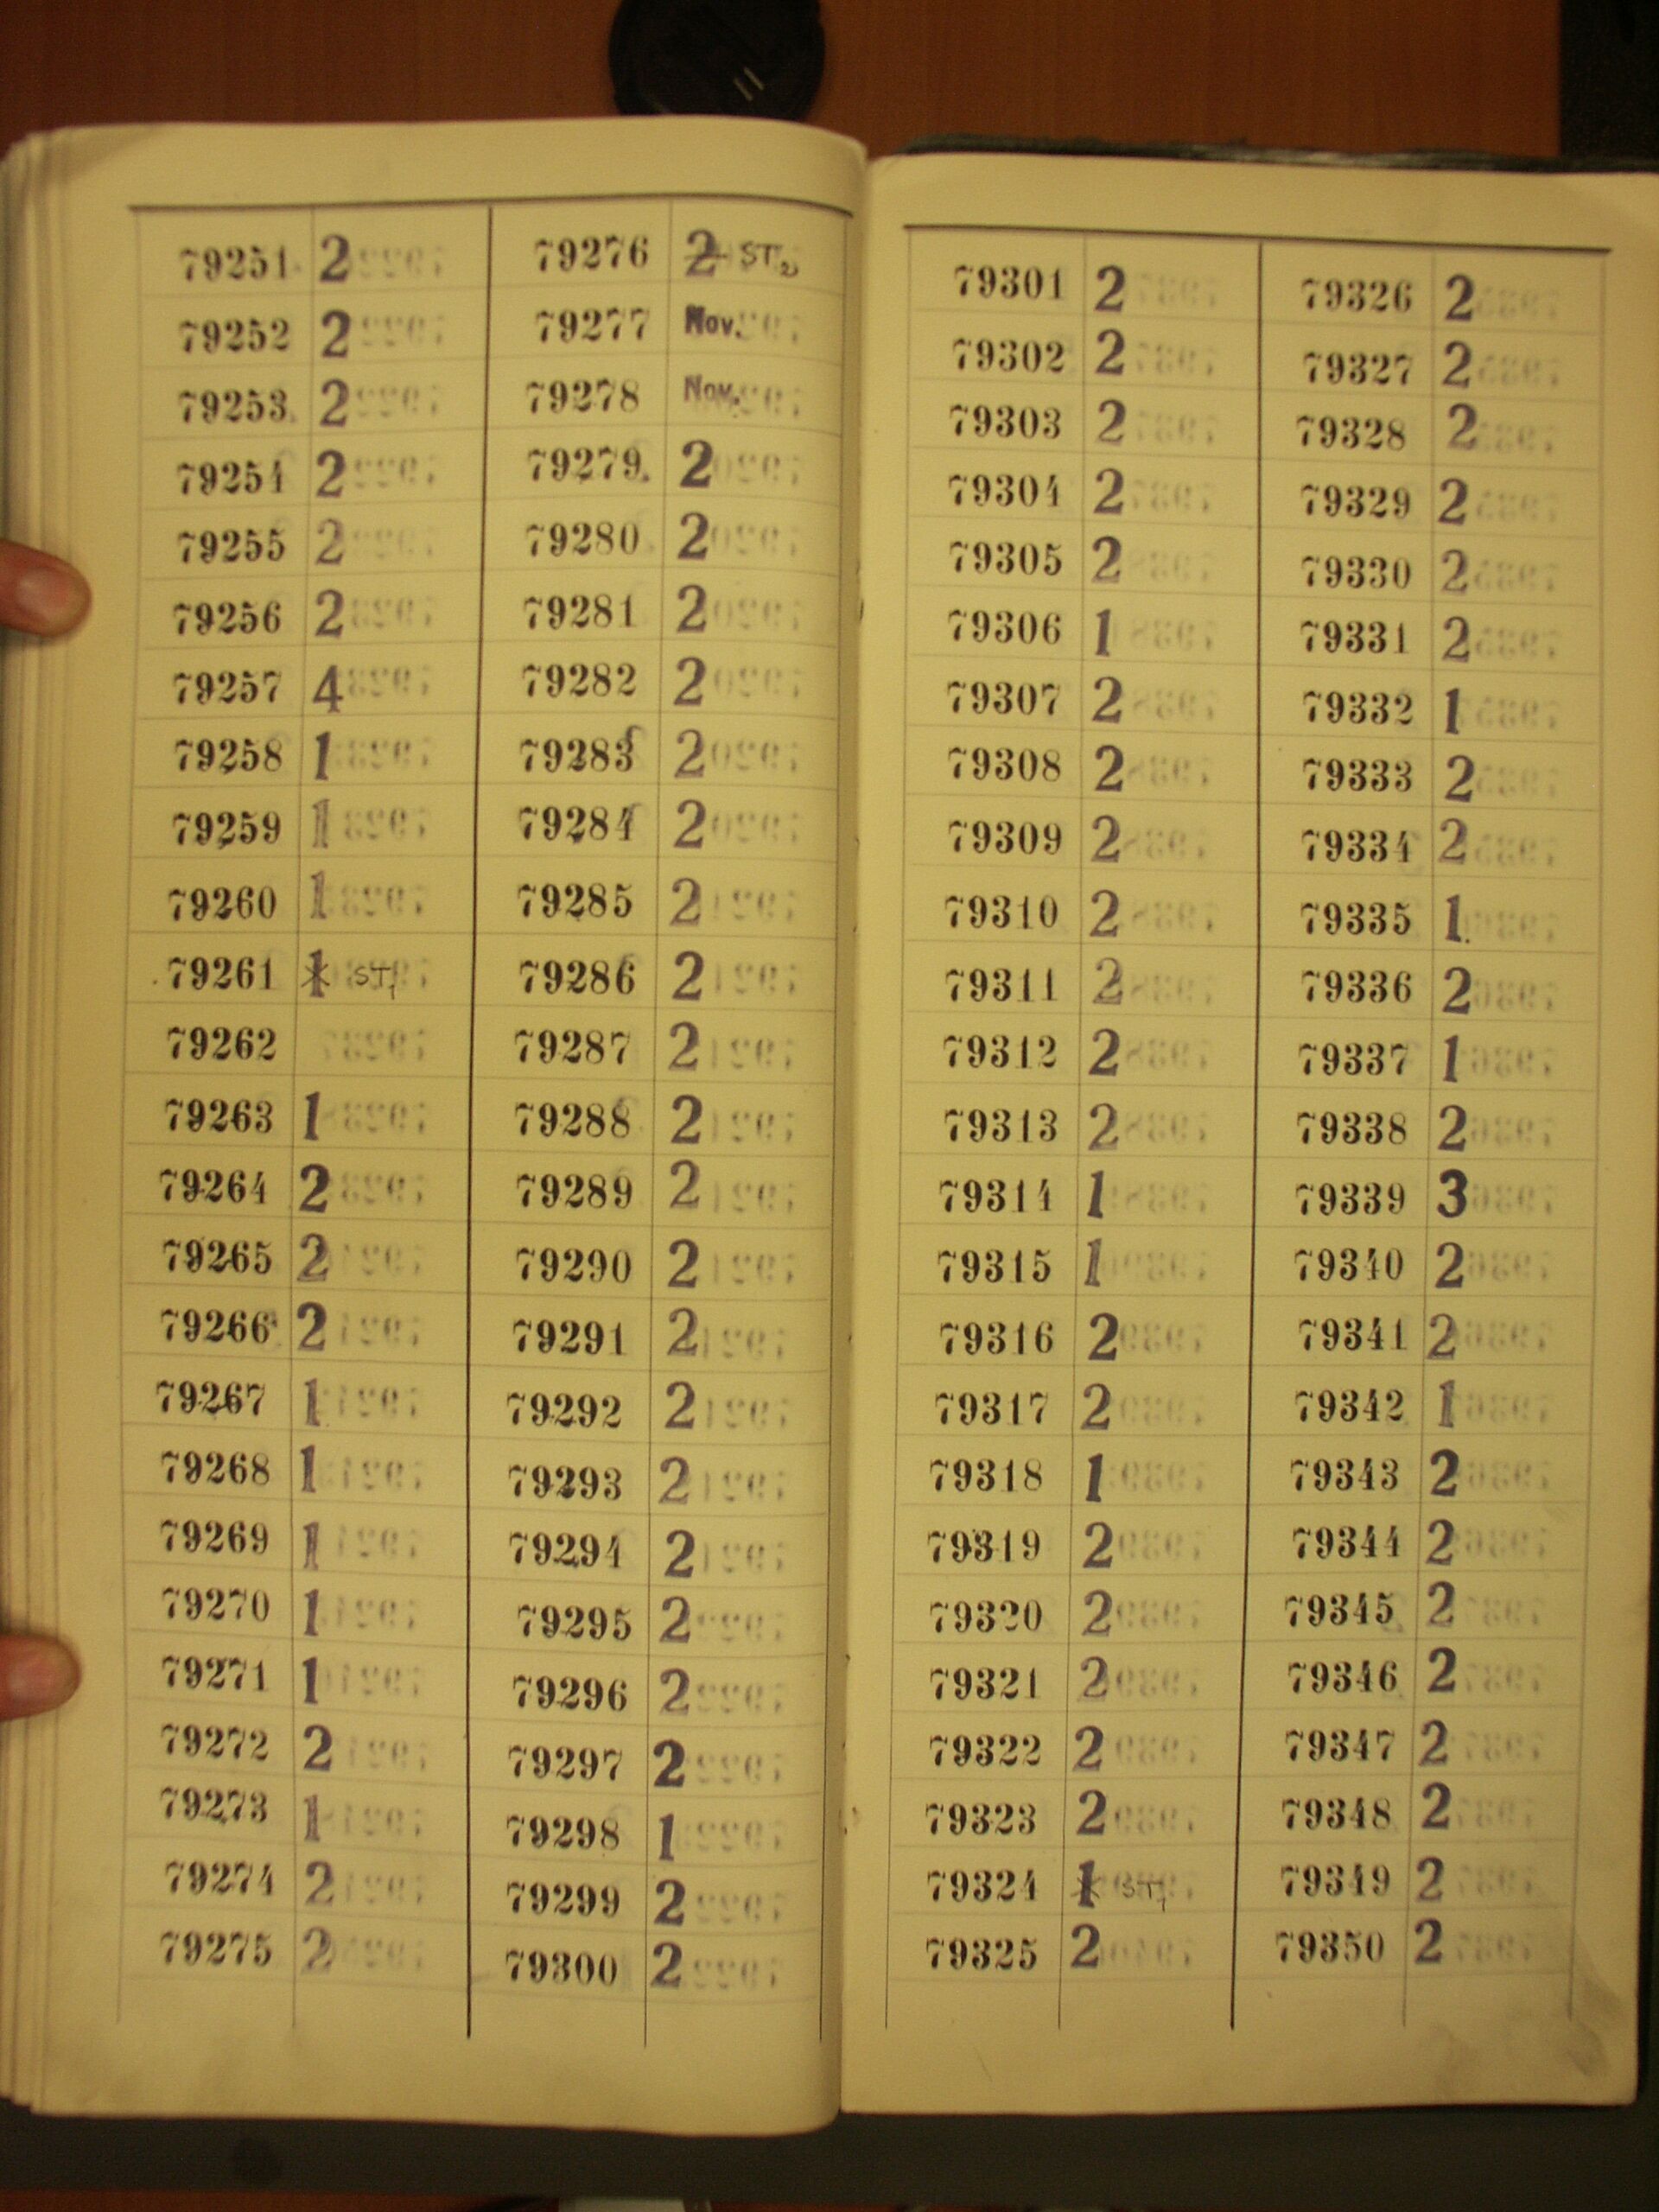 79251 2
79252 2
79253 2
79254 2
79255 2
79256 2
79257 4
79258 1
79259 1
79260 1
79261 1 ST1
79262
79263 1
79264 2
79265 2
79266 2
79267 1
79268 1
79269 1
79270 1
79271 1
79272 2
79273 1
79274 2
79275 2
79276 2 ST2
79277 Nov.
79278 Nov.
79279 2
79280 2
79281 2
79282 2
79283 2
79284 2
79285 2
79286 2
79287 2
79288 2
79289 2
79290 2
79291 2
79292 2
79293 2
79294 2
79295 2
79296 2
79297 2
79298 1
79299 2
79300 2
79301 2
79302 2
79303 2
79304 2
79305 2
79306 1
79307 2
79308 2
79309 2
79310 2
79311 2
79312 2
79313 2
79314 1
79315 1
79316 2
79317 2
79318 1
79319 2
79320 2
79321 2
79322 2
79323 2
79324 1 ST1
79325 2
79326 2
79327 2
79328 2
79329 2
79330 2
79331 2
79332 1
79333 2
79334 2
79335 1
79336 2
79337 1
79338 2
79339 3
79340 2
79341 2
79342 1
79343 2
79344 2
79345 2
79346 2
79347 2
79348 2
79349 2
79350 2